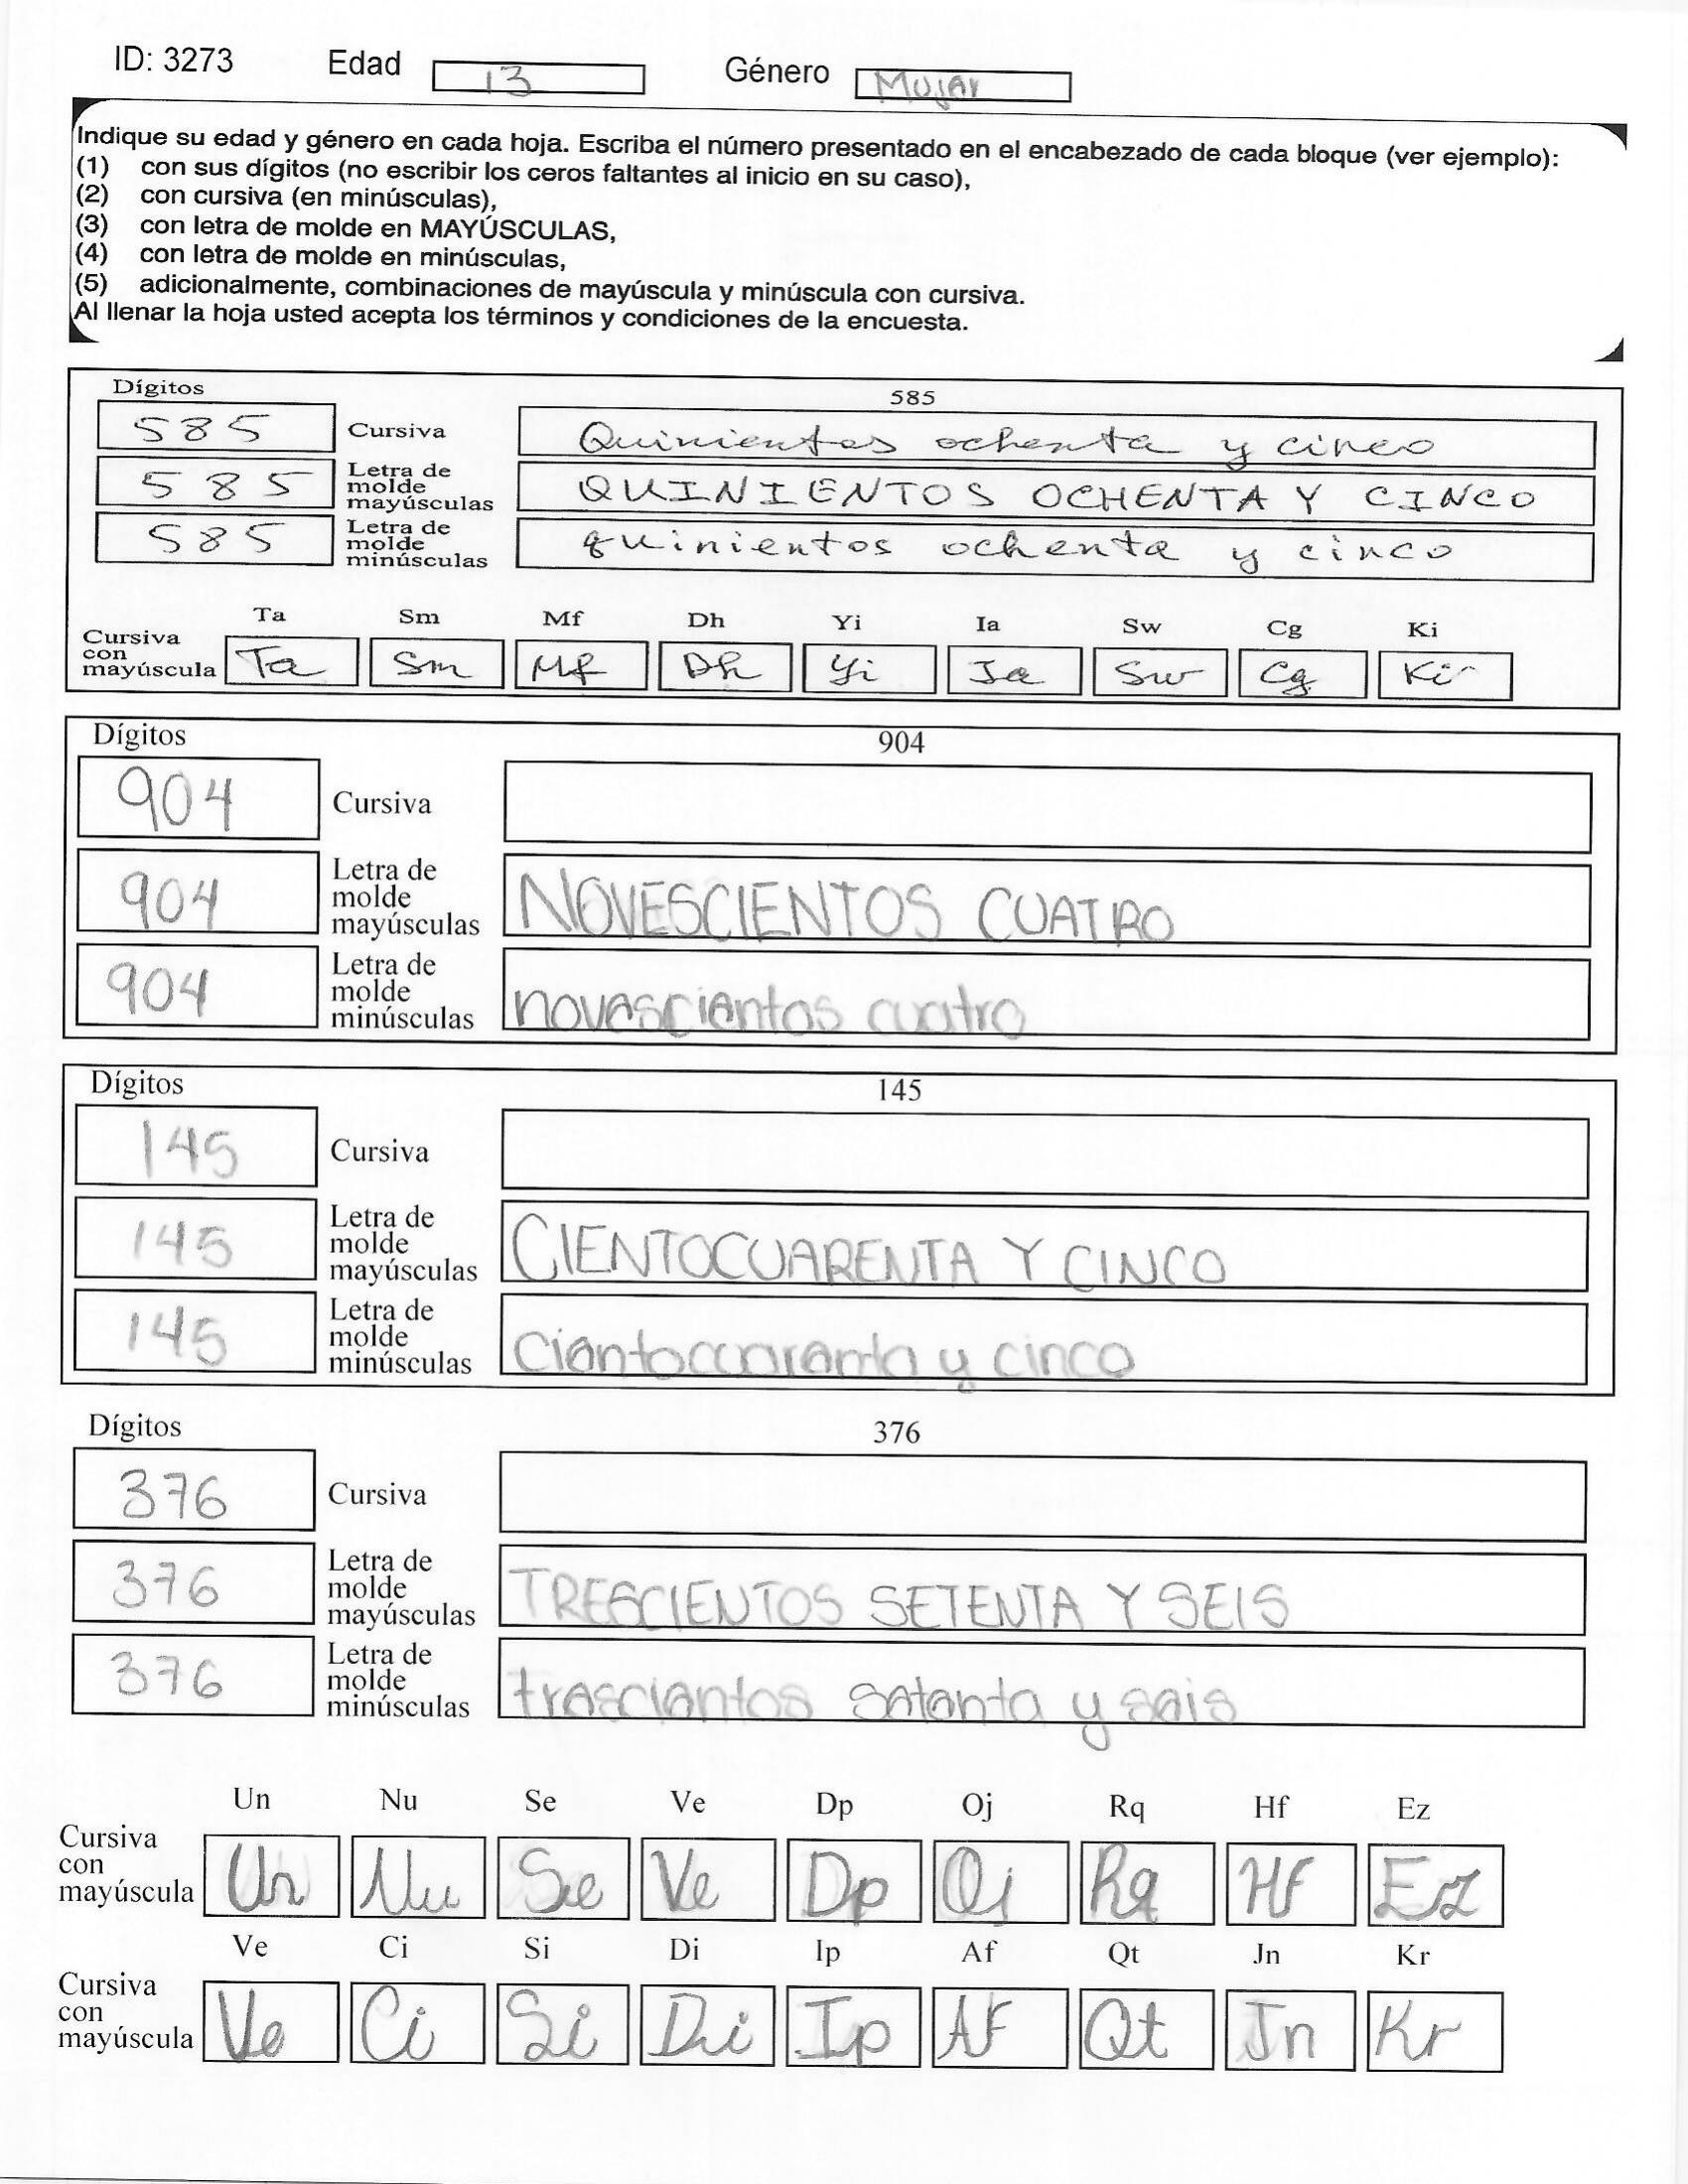 ID: 3273 Edad 13 Género Mujer
Indique su edad y género en cada hoja. Escriba el número presentado en el encabezado de cada bloque (ver ejemplo):
(1) con sus dígitos (no escribir los ceros faltantes al inicio en su caso),
(2) con cursiva (en minúsculas),
(3) con letra de molde en MAYÚSCULAS,
(4) con letra de molde en minúsculas,
(5) adicionalmente, combinaciones de mayúscula y minúscula con cursiva.
Al llenar la hoja usted acepta los términos y condiciones de la encuesta.
Dígitos 585
585 Cursiva Quinientos ochenta y cinco
585 Letra de molde mayúsculas QUINIENTOS OCHENTA Y CINCO
585 Letra de molde minúsculas quinientos ochenta y cinco
Ta Sm Mf Dh Yi Ia Sw Cg Ki
Cursiva con mayúscula Ta Sm Mf Dh Yi Ia Sw Cg Ki
Dígitos 904
904 Cursiva
904 Letra de molde mayúsculas NOVESCIENTOS CUATRO
904 Letra de molde minúsculas novescientos cuatro
Dígitos 145
145 Cursiva
145 Letra de molde mayúsculas CIENTOCUARENTA Y CINCO
145 Letra de molde minúsculas cientocuarenta y cinco
Dígitos 376
376 Cursiva
376 Letra de molde mayúsculas TRESCIENTOS SETENTA Y SEIS
376 Letra de molde minúsculas trescientos setenta y seis
Un Nu Se Ve Dp Oj Rq Hf Ez
Cursiva con mayúscula Un Nu Se Ve Dp Oj Rq Hf Ez
Ve Ci Si Di Ip Af Qt Jn Kr
Cursiva con mayúscula Ve Ci Si Di Ip Af Qt Jn Kr